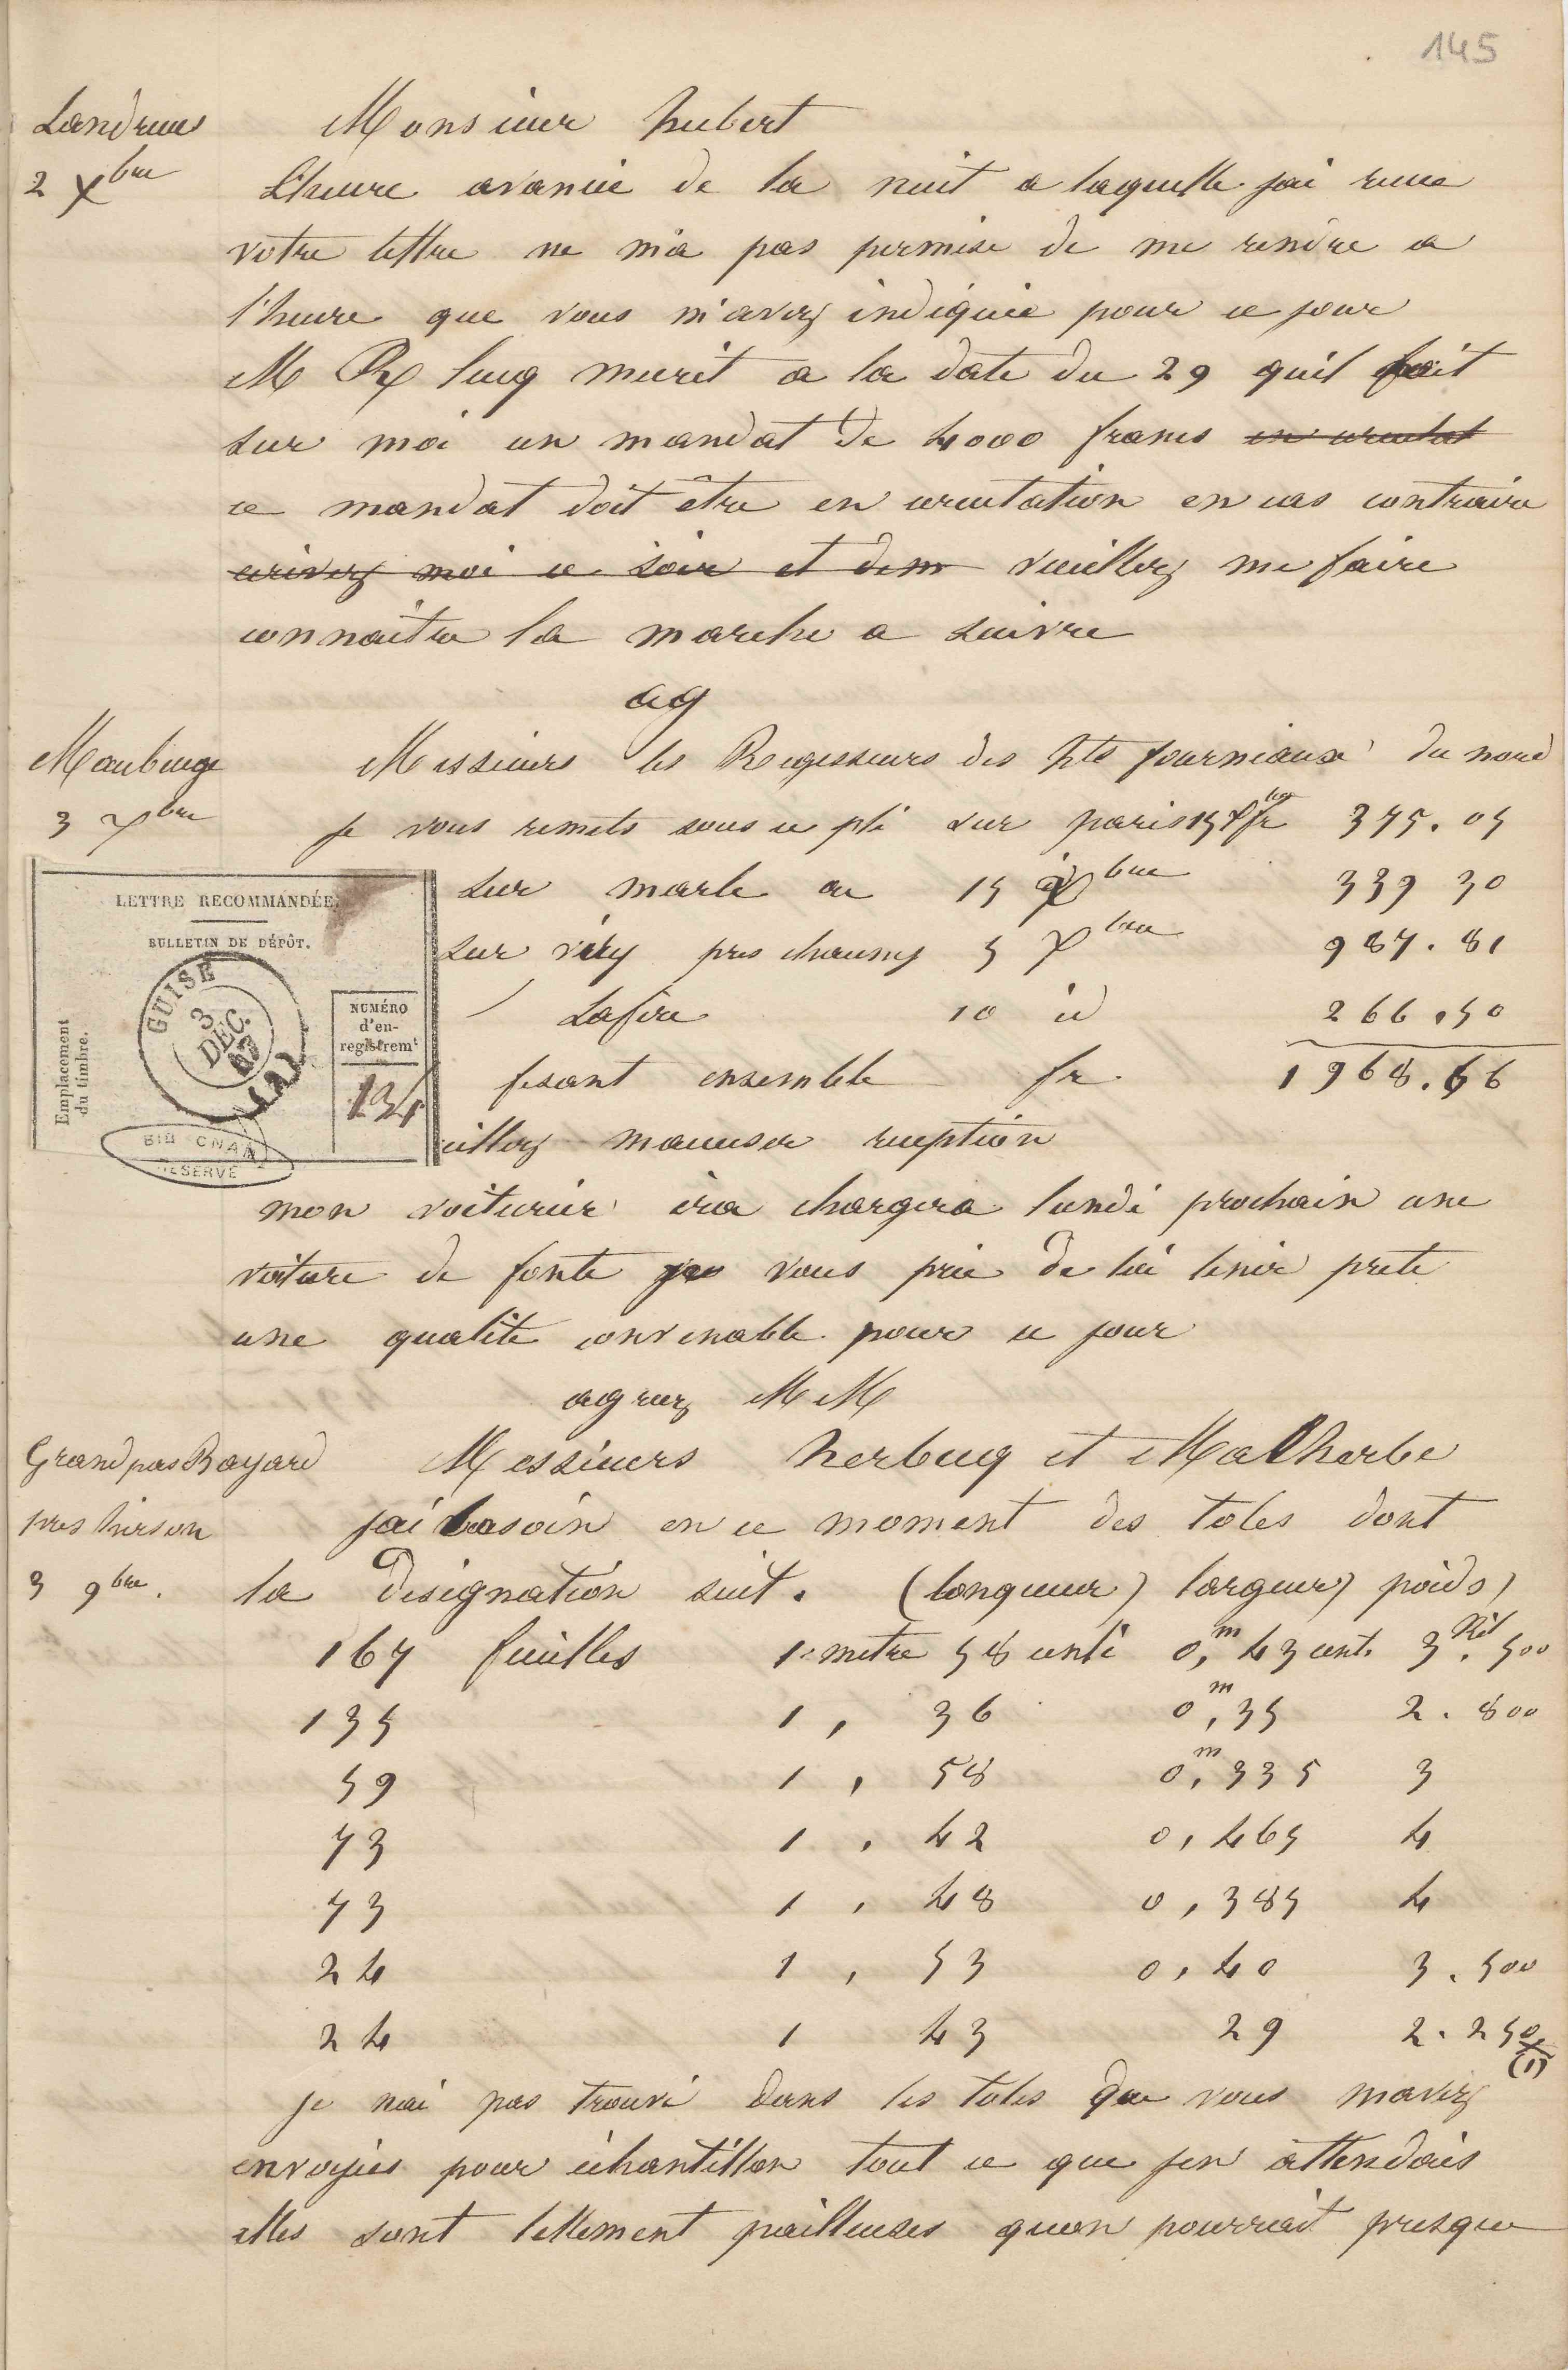 145
Landrecies Monsieur hubert
2 Xbre L'heure avancée de la nuit a laquelle jai recue
votre lettre ne m'a pas permise de me rendre a
l'heure que vous m'avez indiquée pour ce jour
M Rx lucq mecrit a la date du 29 quil fait
sur moi un mandat de 4000 francs en circulat
ce mandat doit être en circulation en cas contraire
ecrivez moi ce soir et dem veuillez me faire
connaitre la marche a suivre
ag
Maubeuge Messieurs les Regisseurs des hts fourneaux du nord
3 Xbre je vous remets sous ce pli sur paris 15 Xbre fr 375.05
sur marle au 15 Xbre 339 30
sur viry pres chauny 5 Xbre 987.81
Lafere 10 id 266.50
fesant ensemble fr. 1968.66
uillez maccuser reception
LETTRE RECOMMANDÉE
BULLETIN DE DÉPÔT.
GUISE
3
DEC.
67
(A)
Emplacement
du timbre.
NUMÉRO
d'en-
registremt
134
BIB CNAM
RESERVE
mon voiturier ira chargera lundi prochain une
voiture de fonte je vous prie de lui tenir prete
une qualite convenable pour ce jour
agreez MM
Grand pas Bayard Messieurs herbecq et Malherbe
pres hirson jai besoin en ce moment des toles dont
3 9bre. la designation suit. (longueur) largeur) poids)
167 feuilles 1 metre 58 centi 0,m 43 cent. 3.Kil 500
135 1, 36 0,m 35 2.800
59 1, 58 0,m 335 3
73 1, 42 0,465 4
73 1, 48 0,385 4
24 1, 53 0,40 3.500
24 1 43 29 2.250
(1)
je nai pas trouvé dans les toles que vous mavez
envoyées pour échantillon tout ce que jen attendais
elles sont tellement pailleuses quon pourrait presque